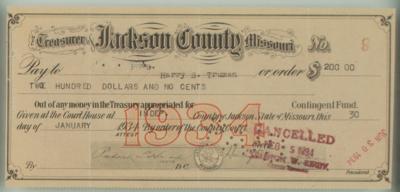 The Treasurer Jackson County Missouri. No. 8
Pay to Harry S. Truman or order $ 200.00
TWO HUNDRED DOLLARS AND NO CENTS
Out of any money in the Treasury appropriated for Contingent Fund.
Given at the Court House at INDEP. County of Jackson, State of Missouri, this 30
day of JANUARY 1934 By order of the County Court
1934
ATTEST
CANCELLED
FEB 5 1934
JAN 30 1934
By D.C. President